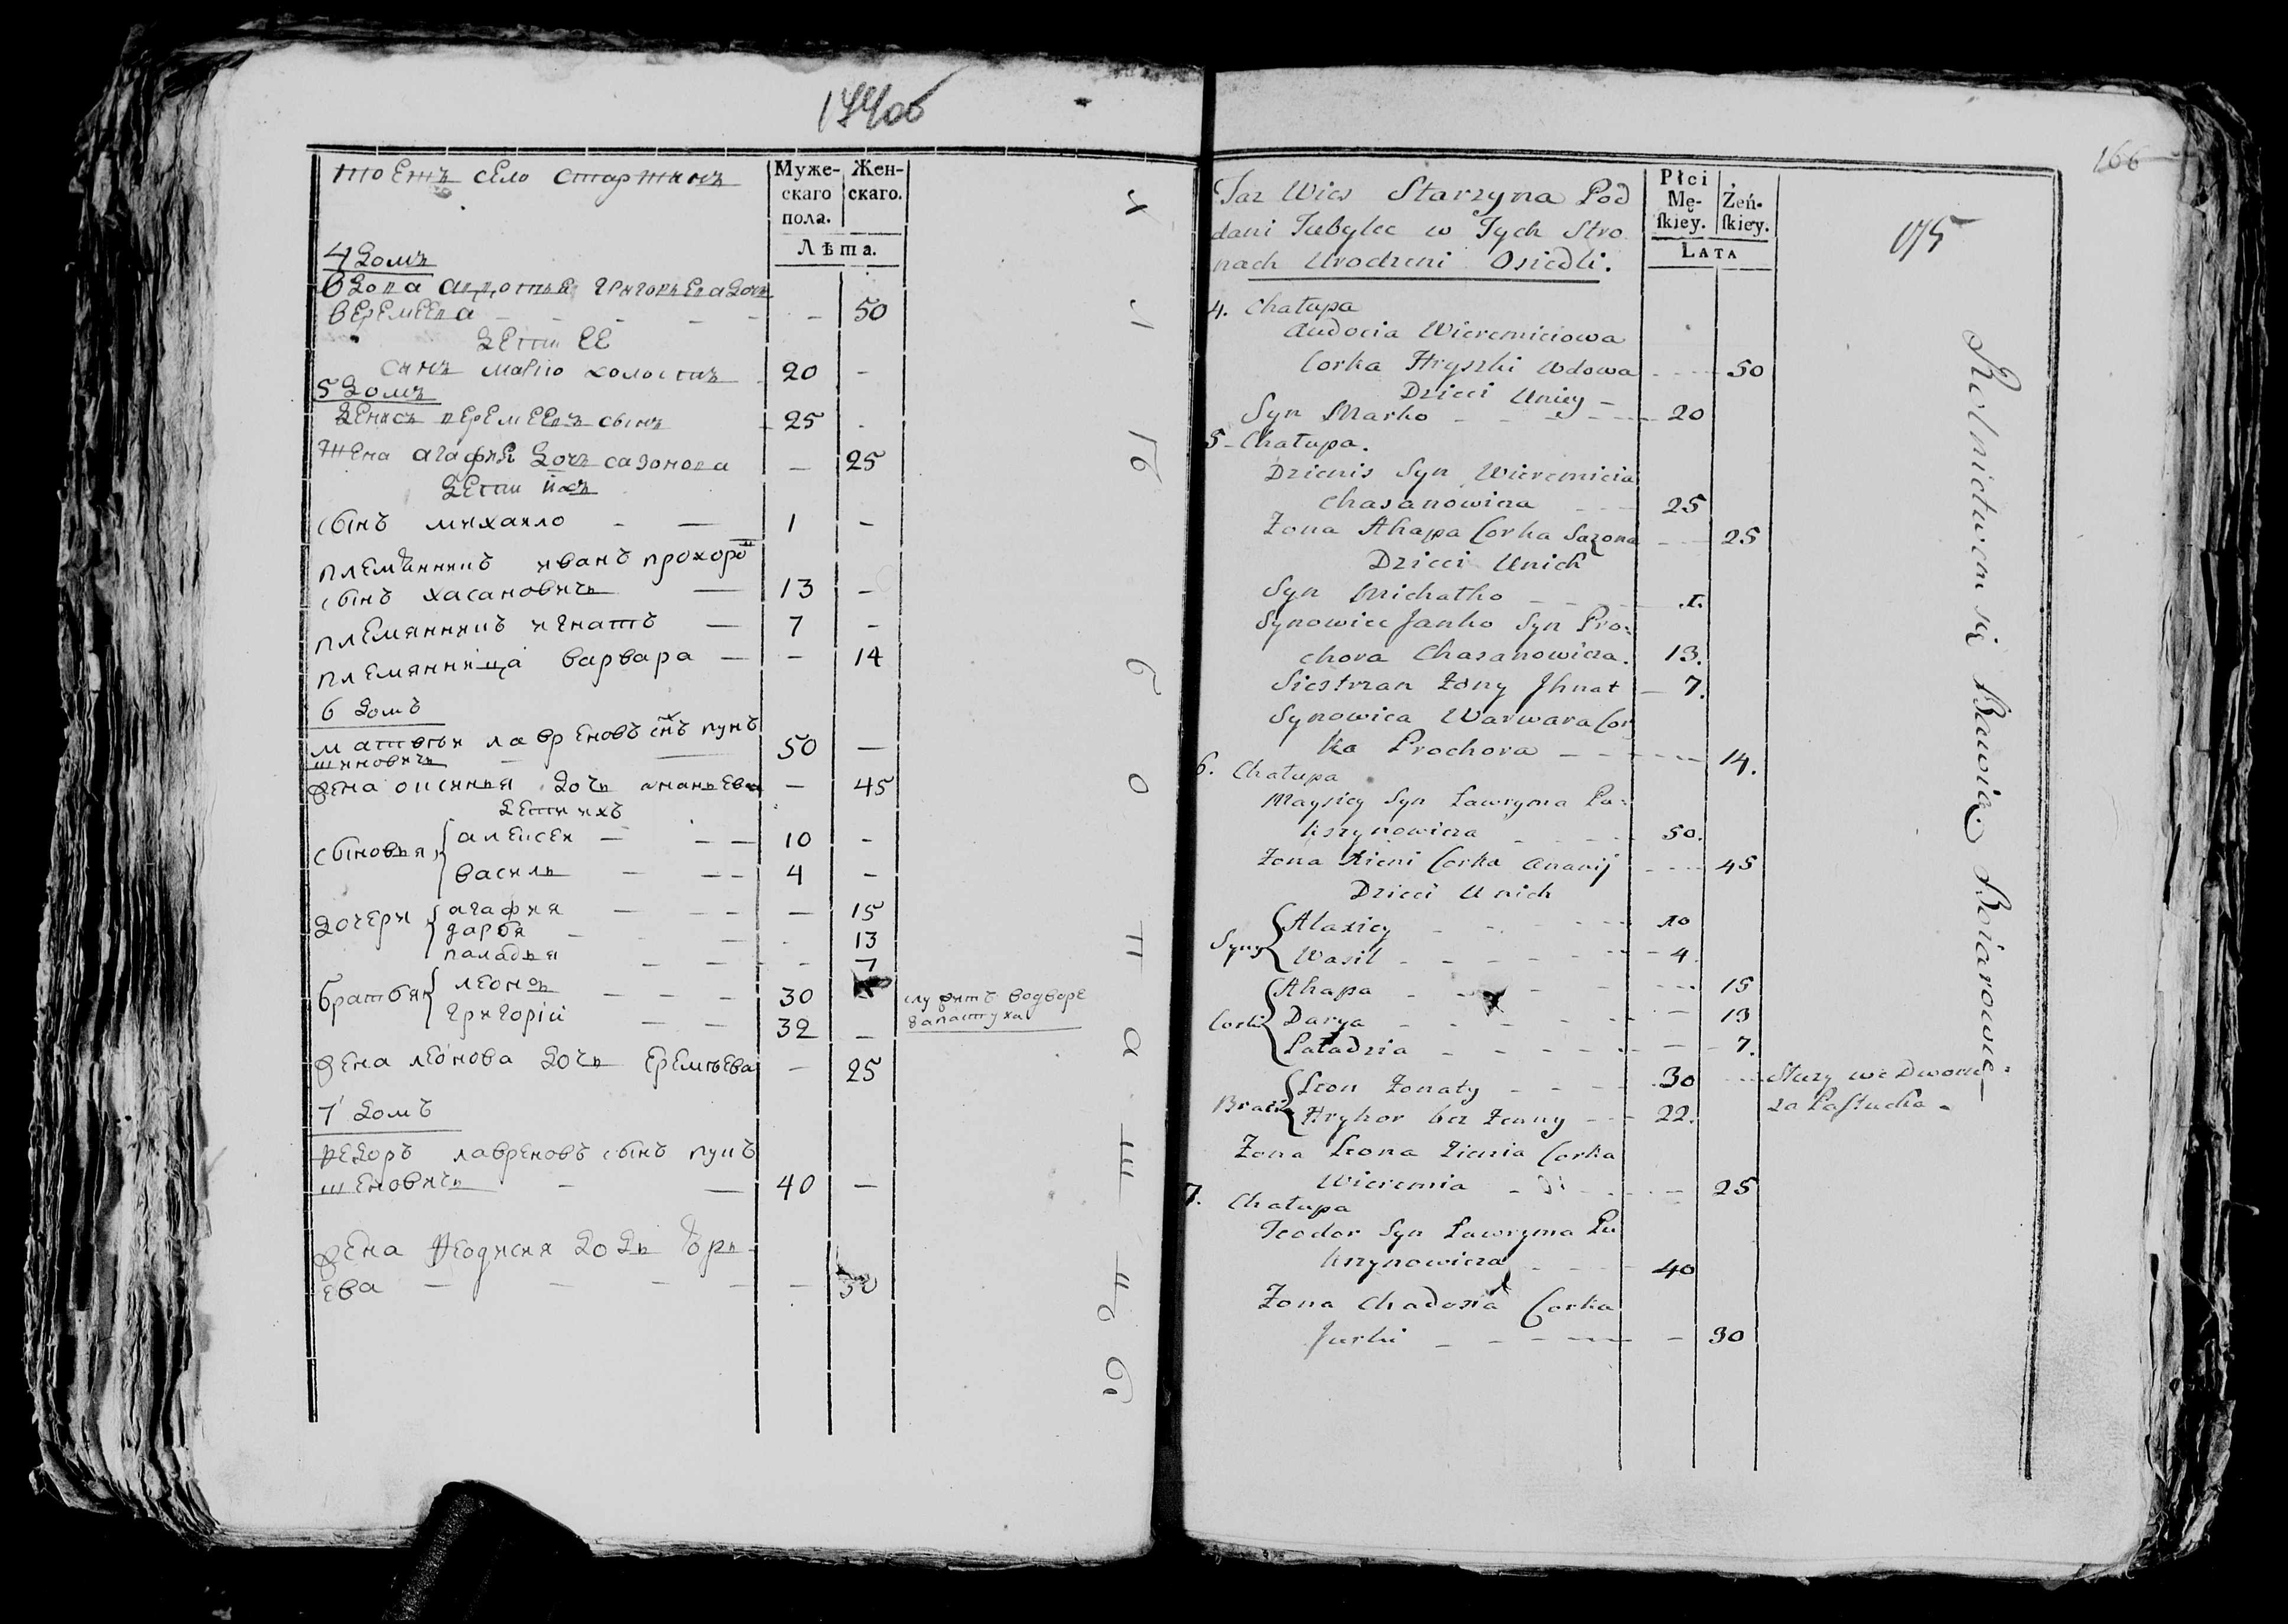 174об
тоежъ село старжинъ
Муже-
скаго
пола.
Жен-
скаго.
Лѣта.
4 домъ
вдова авдотья григорьева дочь
веремеева — 50
дети ее
синъ марко холостъ 20 -
5 домъ
денисъ веремеевъ сынъ 25 -
жена агафья дочь сазонова — 25
дети ихъ
сынъ михаило — 1 -
племянникъ иванъ прохоровъ
сынъ хасановичь — 13 -
племянникъ игнатъ — 7 -
племянница варвара — - 14
6 домъ
матвеи лавреновъ снъ пукъ
шиновичь 50 —
жена оксинья дочь ананьева — 45
дети ихъ
сыновья алексеи — 10 -
василь — 4 -
дочери агафия — 15
дарья — 13
паладья — 7
братья леонъ — 30
григорій — 32 —
служитъ водворе
запастуха
жена леонова дочь еремѣева — 25
7 домъ
федоръ лавреновъ сынъ пукъ
шеновичь — 40 —
жена феодисия дочь юрь-
ева — 30
166
175
Taz Wies Starzyna Pod
dani Tubylce w Tych Stro
nach Urodzeni Osiedli.
Płci
Mę-
skiey.
Żeń-
skiey.
LATA
4. Chałupa
Audocia Wieremiciowa
Corka Hryszki Wdowa 50
Dzieci Uniey -
Syn Marko 20
5 - Chałupa.
Dzienis Syn Wieremieia
Chasanowicza 25
Zona Ahapa Corka Sazona 25
Dzieci Unich
Syn Michałko 1.
Synowiec Janko Syn Pro:
chora Chasanowicza. 13.
Siestrzan Zony Jhnat 7.
Synowica Warwara Cor
ka Prochora 14.
6. Chałupa
Maysiey Syn Ławryna Pu:
kszynowicza 50.
Zona Xieni Corka Ananij 45
Dzieci Unich
Syny Alaxiey 10
Wasil 4.
Corki Ahapa 15
Darya 13
Paładzia 7.
Braci Leon Zonaty 30
Hryhor bez Zenny 22.
Słuzy we Dworze
za Pastucha
Zona Leona Zienia Corka
Wieremia 25
7. Chałupa
Teodor Syn Ławryna Pu
kszynowicza 40
Zona Chadosia Corka
Jurki 30
Rolnictwem się Bawią Boiarowie